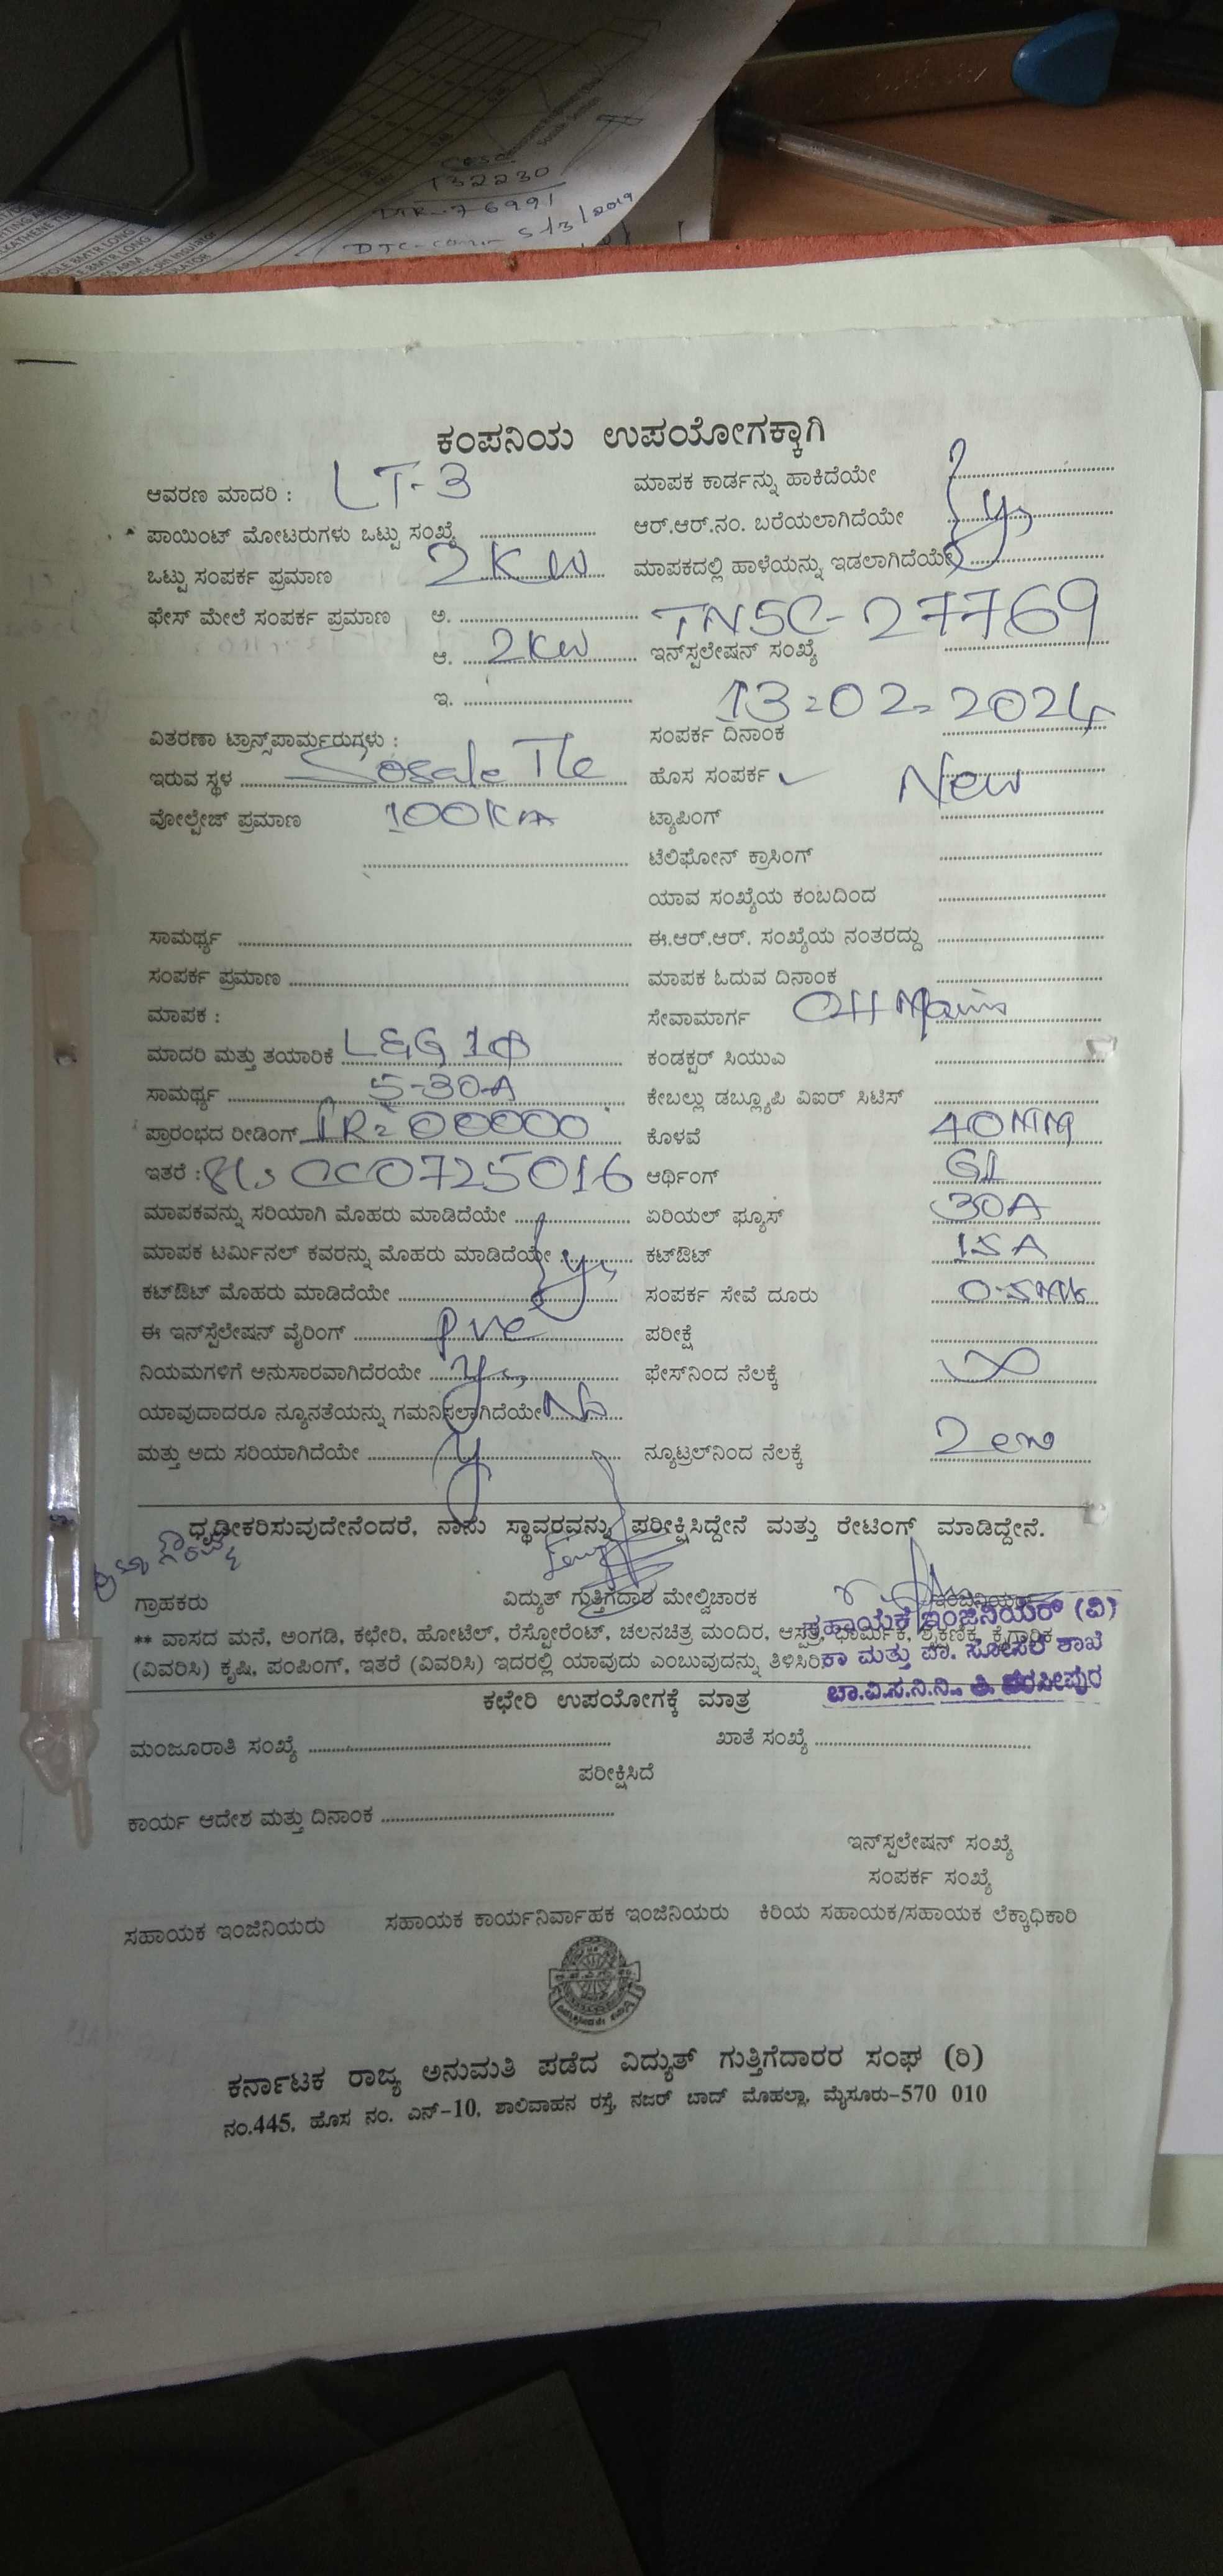 132230
DTR-76991
5/3/2019
ಕಂಪನಿಯ ಉಪಯೋಗಕ್ಕಾಗಿ
ಆವರಣ ಮಾದರಿ : LT-3 ಮಾಪಕ ಕಾರ್ಡನ್ನು ಹಾಕಿದೆಯೇ
ಪಾಯಿಂಟ್ ಮೋಟರುಗಳು ಒಟ್ಟು ಸಂಖ್ಯೆ ಆರ್.ಆರ್.ನಂ. ಬರೆಯಲಾಗಿದೆಯೇ
ಒಟ್ಟು ಸಂಪರ್ಕ ಪ್ರಮಾಣ 2KW ಮಾಪಕದಲ್ಲಿ ಹಾಳೆಯನ್ನು ಇಡಲಾಗಿದೆಯೇ
ಫೇಸ್ ಮೇಲೆ ಸಂಪರ್ಕ ಪ್ರಮಾಣ ಅ. TNSC-27769
ಆ. 2KW ಇನ್‌ಸ್ಪಲೇಷನ್ ಸಂಖ್ಯೆ
ಇ. 13-02-2024
ವಿತರಣಾ ಟ್ರಾನ್ಸ್‌ಪಾರ್ಮರುಗಳು : ಸಂಪರ್ಕ ದಿನಾಂಕ
ಇರುವ ಸ್ಥಳ Sosale ಹೊಸ ಸಂಪರ್ಕ New
ವೋಲ್ಟೇಜ್ ಪ್ರಮಾಣ ಟ್ಯಾಪಿಂಗ್
ಟೆಲಿಫೋನ್ ಕ್ರಾಸಿಂಗ್
ಯಾವ ಸಂಖ್ಯೆಯ ಕಂಬದಿಂದ
ಸಾಮರ್ಥ್ಯ ಈ.ಆರ್.ಆರ್. ಸಂಖ್ಯೆಯ ನಂತರದ್ದು
ಸಂಪರ್ಕ ಪ್ರಮಾಣ ಮಾಪಕ ಓದುವ ದಿನಾಂಕ
ಮಾಪಕ : ಸೇವಾಮಾರ್ಗ OH Mains
ಮಾದರಿ ಮತ್ತು ತಯಾರಿಕೆ L&G 1Φ ಕಂಡಕ್ಟರ್ ಸಿಯುಎ
ಸಾಮರ್ಥ್ಯ 5-30A ಕೇಬಲ್ಲು ಡಬ್ಲ್ಯೂಪಿ ವಿಐರ್ ಸಿಟಿಸ್
ಪ್ರಾರಂಭದ ರೀಡಿಂಗ್ IR=00000 ಕೊಳವೆ 40MM
ಇತರೆ : CC0725016 ಆರ್ಥಿಂಗ್ GI
ಮಾಪಕವನ್ನು ಸರಿಯಾಗಿ ಮೊಹರು ಮಾಡಿದೆಯೇ ಏರಿಯಲ್ ಫ್ಯೂಸ್ 30A
ಮಾಪಕ ಟರ್ಮಿನಲ್ ಕವರನ್ನು ಮೊಹರು ಮಾಡಿದೆಯೇ ಕಟ್‌ಔಟ್ 15A
ಕಟ್‌ಔಟ್ ಮೊಹರು ಮಾಡಿದೆಯೇ ಸಂಪರ್ಕ ಸೇವೆ ದೂರು
ಈ ಇನ್‌ಸ್ಪೆಲೇಷನ್ ವೈರಿಂಗ್ pvc ಪರೀಕ್ಷೆ
ನಿಯಮಗಳಿಗೆ ಅನುಸಾರವಾಗಿದೆರಯೇ yes ಫೇಸ್‌ನಿಂದ ನೆಲಕ್ಕೆ ∞
ಯಾವುದಾದರೂ ನ್ಯೂನತೆಯನ್ನು ಗಮನಿಸಲಾಗಿದೆಯೇ No
ಮತ್ತು ಅದು ಸರಿಯಾಗಿದೆಯೇ ನ್ಯೂಟ್ರಲ್‌ನಿಂದ ನೆಲಕ್ಕೆ Zero
ಧೃಡೀಕರಿಸುವುದೇನೆಂದರೆ, ನಾನು ಸ್ಥಾವರವನ್ನು ಪರೀಕ್ಷಿಸಿದ್ದೇನೆ ಮತ್ತು ರೇಟಿಂಗ್ ಮಾಡಿದ್ದೇನೆ.
ಗ್ರಾಹಕರು ವಿದ್ಯುತ್ ಗುತ್ತಿಗೆದಾರ ಮೇಲ್ವಿಚಾರಕ ಇಂಜಿನಿಯರ್
ಸಹಾಯಕ ಇಂಜಿನಿಯರ್ (ವಿ)
** ವಾಸದ ಮನೆ, ಅಂಗಡಿ, ಕಛೇರಿ, ಹೋಟೆಲ್, ರೆಸ್ಟೋರೆಂಟ್, ಚಲನಚಿತ್ರ ಮಂದಿರ, ಆಸ್ಪತ್ರೆ, ಧಾರ್ಮಿಕ, ಶೈಕ್ಷಣಿಕ, ಕೈಗಾರಿಕ
ಕಾ ಮತ್ತು ಪಾ. ಸೋಸಲೆ ಶಾಖೆ
(ವಿವರಿಸಿ) ಕೃಷಿ, ಪಂಪಿಂಗ್, ಇತರೆ (ವಿವರಿಸಿ) ಇದರಲ್ಲಿ ಯಾವುದು ಎಂಬುವುದನ್ನು ತಿಳಿಸಿರಿ.
ಚಾ.ವಿ.ಸ.ನಿ.ನಿ.
ಕಛೇರಿ ಉಪಯೋಗಕ್ಕೆ ಮಾತ್ರ
ಮಂಜೂರಾತಿ ಸಂಖ್ಯೆ ಖಾತೆ ಸಂಖ್ಯೆ
ಪರೀಕ್ಷಿಸಿದೆ
ಕಾರ್ಯ ಆದೇಶ ಮತ್ತು ದಿನಾಂಕ
ಇನ್‌ಸ್ಪಲೇಷನ್ ಸಂಖ್ಯೆ
ಸಂಪರ್ಕ ಸಂಖ್ಯೆ
ಸಹಾಯಕ ಇಂಜಿನಿಯರು ಸಹಾಯಕ ಕಾರ್ಯನಿರ್ವಾಹಕ ಇಂಜಿನಿಯರು ಕಿರಿಯ ಸಹಾಯಕ/ಸಹಾಯಕ ಲೆಕ್ಕಾಧಿಕಾರಿ
ಕರ್ನಾಟಕ ರಾಜ್ಯ ಅನುಮತಿ ಪಡೆದ ವಿದ್ಯುತ್ ಗುತ್ತಿಗೆದಾರರ ಸಂಘ (ರಿ)
ನಂ.445, ಹೊಸ ನಂ. ಎನ್-10, ಶಾಲಿವಾಹನ ರಸ್ತೆ, ನಜರ್ ಬಾದ್ ಮೊಹಲ್ಲಾ, ಮೈಸೂರು-570 010